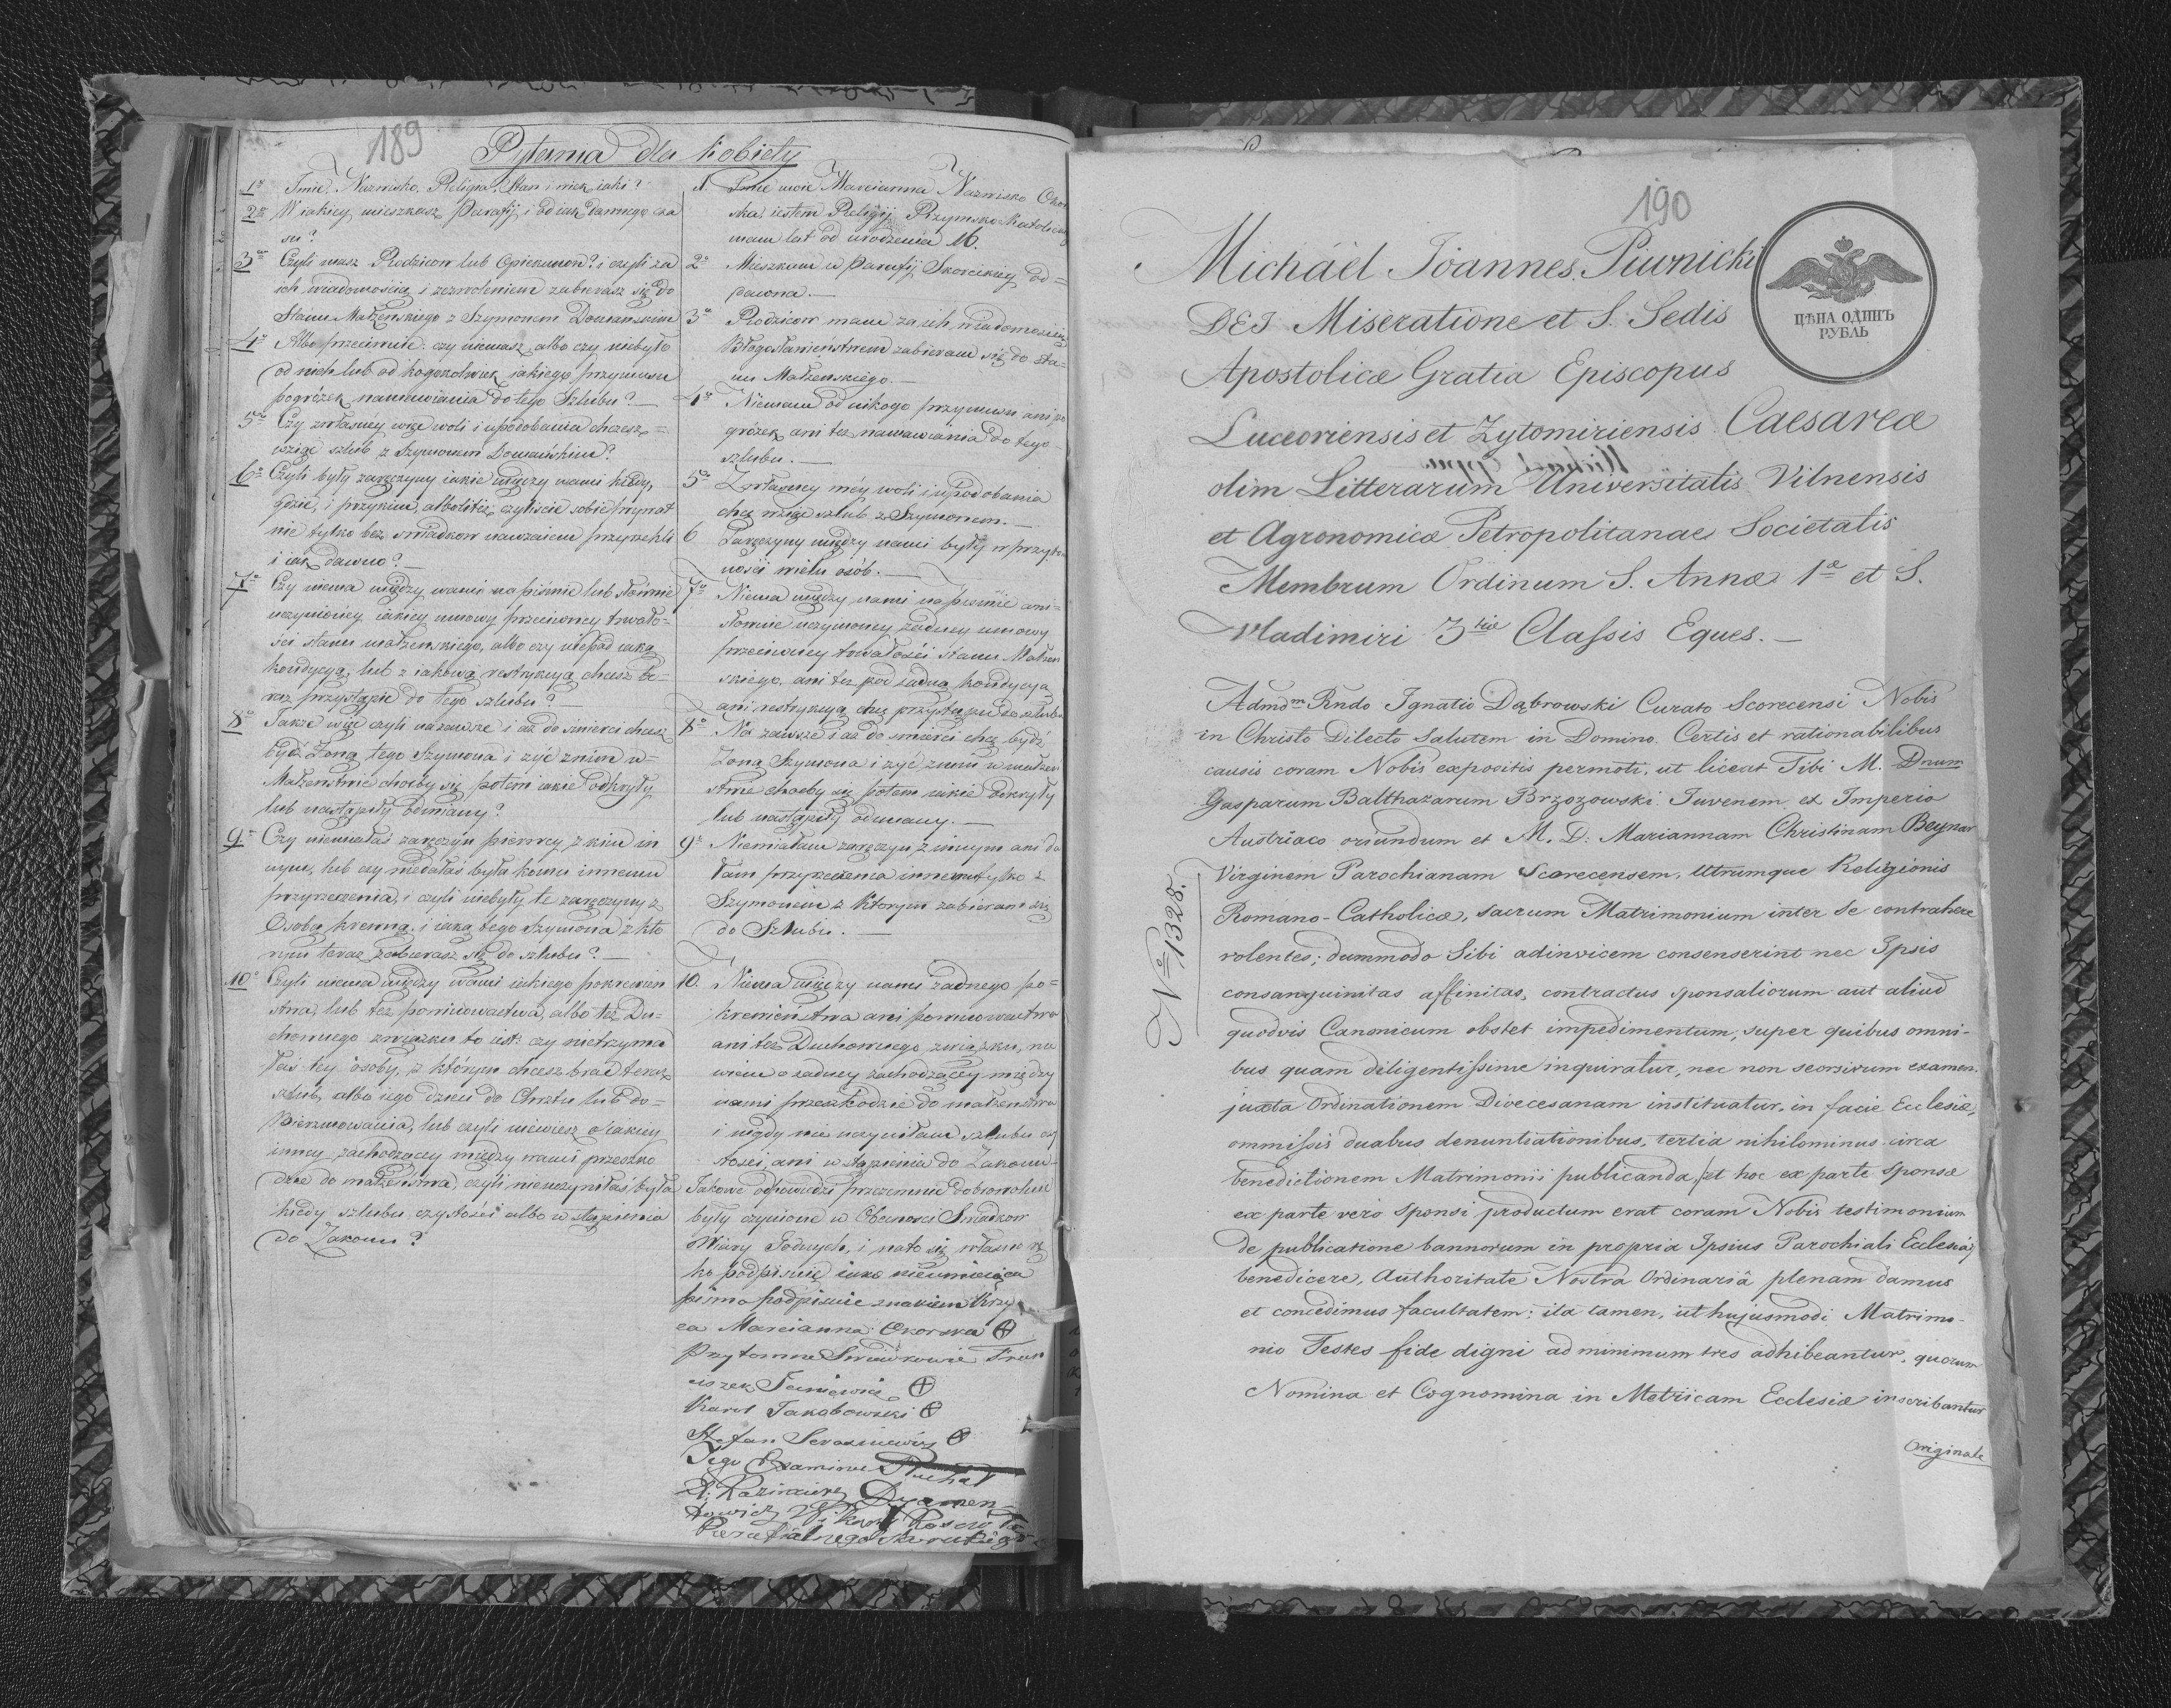 189
Pytania dla kobiety
1o Imie, Nazwisko, Religia, Stan i wiek iaki?
2o W iakiey mieszkasz Parafij i od iak dawnego cza
su?
3o Czyli masz Rodzicow lub Opiekunow? i czyli za
ich wiadomością i zezwoleniem zabierasz się do
Stanu Małżenskiego z Szymonem Domanskim
4o Albo przeciwnie: czy niemasz, albo czy niebyło
od nich lub od kogokolwiek iakiego przymusu
pogrózek namawiania do tego Szlubu?
5o Czy zwłasney więc woli i upodobania chcesz
wziąć szlub z Szymonem Domańskim?
6o Czyli były zaręczyny iakie między wami kiedy,
gdzie, i przykim, albolitéż czyliście sobie prywat
nie tylko bez swiadkow nawzaiem przyrzekli
i iak dawno?
7o Czy niema między wami napiśmie lub słownie
uczynioney iakiey umowy przeciwney trwało-
ści stanu małżenskiego, albo czy niepod iaką
kondycyą, lub z iakową restrykcyą chcesz te-
raz przystąpić do tego szlubu?
8o Także więc czyli nazawsze i aż do śmierci chcesz
bydź Zoną tego Szymona i zyć znim w-
Małżenstwie chocby się potem iakie odkryły
lub nastąpiły odmiany?
9o Czy niemiałaś zaręczyn pierwey z kim in
nym, lub czy niedałaś była komu innemu
przyrzeczenia, i czyli niebyły te zaręczyny z
Osobą krewną iaką tego Szymona z kto
rym teraz zabierasz się do szlubu?
10o Czyli niema między Wami iakiego pokrewien
stwa, lub też powinowactwa, albo też Du-
chownego związku to iest: czy nietrzyma
łaś tey osoby, z którym chcesz brać teraz
szlub, albo iego dzieci do Chrztu lub do-
Bierzmowania, lub czyli niewiesz o iakiey
inney zachodzącey między wami przeszko
dzie do małżeństwa, czyli nieuczyniłaś była
kiedy szlubu czystości albo w stąpienia
do Zakonu?
1. Imie moie Marcianna Nazwisko
ska, iestem Religij Rzymsko Katolickiey
mam lat od urodzenia 16.
2o Mieszkam w Parafij Skorcikiey od=
dawna.
3o Rodzicow mam za ich wiadomością
Błogosławieństwem zabieram się do sta-
nu Małżenskiego.
4o Niemam od nikogo przymusu ani po
gróżek ani też namawiania do tego
szlubu.
5o Zwłasney méy woli i upodobania
chcę wziąć szlub z Szymonem.
6 Zaręczyny między nami były w przytom
ności wielu osób.
7o Niema między nami napiśmie ani=
słownie uczynioney żadney umowy
przeciwney trwałości stanu Małżen
skiego, ani też pod żadną kondycyą
ani restrykcyą chcę przystąpić do szlubu
8o Na zawsze i aż do smierci chcę bydź
Zoną Szymona i zyć znim w małżen
stwie choćby się potem iakie odkryły
lub nastąpiły odmiany.
9o Niemiałam zaręczyn z innym ani da
łam przyrzeczenia innemu tylko z
Szymonem z którym zabieram się
do Szlubu.
10. Niema między nami żadnego po=
krewieństwa ani powinowactwa
ani też Duchownego związku, nie
wiem o żadney zachodzącey między
nami przeszkodzie do małżenstwa
i nigdy nie uczyniłam szlubu czy
stości, ani w stąpienia do Zakonu
Takowe odpowiedzi przezemnie dobrowolnie
były czynione w Obecności Swiadkow
Wiary Godnych, i nato się własną rę
ką podpisuię iako nieumieiąca
pisma podpisuie znakiem Krzy
ża Marcianna Okorska ⊕
Przytomne Swiadkowie Fran
ciszek ⊕
Karol Jakobowski ⊕
Stefan ⊕
Tego Examinu
X. Kazimierz Dyamen-
towicz Wikary Koscioła
Parafialnego
190
Michaël Joannes Piwnicki
DEI Miseratione et S. Sedis
Apostolicæ Gratia Episcopus
Luceoriensis et Zytomiriensis Caesareæ
olim Litterarum Universitatis Vilnensis
et Agronomicæ Petropolitanae Societatis
Membrum Ordinum S. Annæ 1æ et S.
Vladimiri 3tiæ Classis Eques.
ЦѢНА ОДИНЪ
РУБЛЬ
Admdm Rndo Ignatio Dąbrowski Curato Scorecensi Nobis
in Christo Dilecto Salutem in Domino. Certis et rationabilibus
causis coram Nobis expositis permoti, ut liceat Tibi M. Dnum
Gasparum Balthazarum Brzozowski Juvenem ex Imperio
Austriaco oriundum et M. D: Mariannam Christinam Beynar
Virginem Parochianam Scorecensem, Utrumque Religionis
Romano-Catholicæ, sacrum Matrimonium inter se contrahere
volentes; dummodo Sibi adinvicem consenserint nec Ipsis
consanguinitas affinitas, contractus sponsaliorum aut aliud
quodvis Canonicum obstet impedimentum, super quibus omni-
bus quam diligentissime inquiratur, nec non seorsivum examen
juxta Ordinationem Dioecesanam instituatur, in facie Ecclesiæ,
ommissis duabus denuntiationibus, tertia nihilominus circa
benedictionem Matrimonii publicanda, (et hoc ex parte sponsæ
ex parte verò sponsi productum erat coram Nobis testimonium
de publicatione bannorum in propria Ipsius Parochiali Ecclesia)
benedicere, Authoritate Nostra Ordinariâ plenam damus
et concedimus facultatem; ita tamen, ut hujusmodi Matrimo-
nio Testes fide digni ad minimum tres adhibeantur, quorum
Nomina et Cognomina in Metricam Ecclesiæ inscribantur
Originale
No 1328.